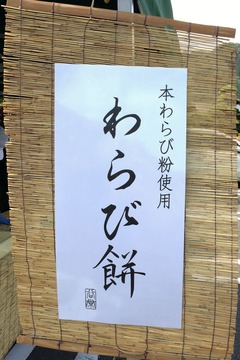 本わらび粉使用
わらび餅